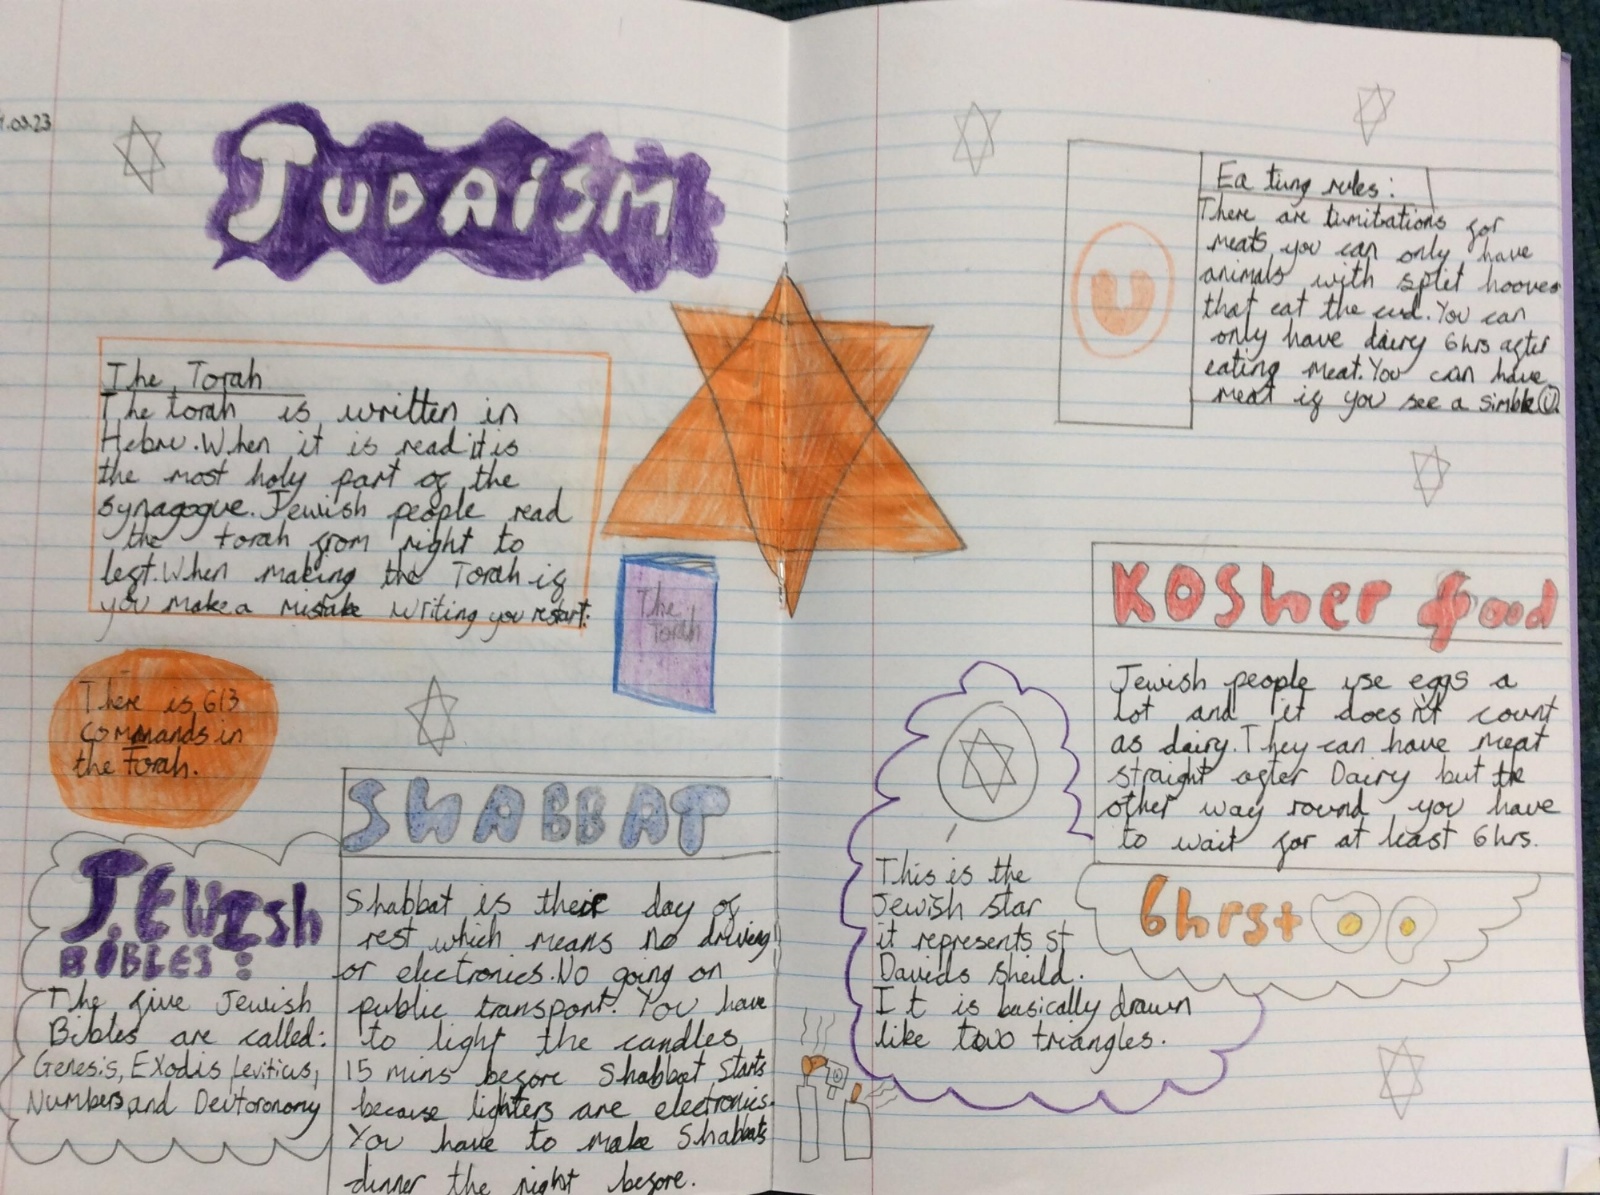 .03.23
JUDAiSM
The Torah
The torah is written in
Hebru. When it is read it is
the most holy part of the
synagogue. Jewish people read
the torah from right to
left. When making the Torah if
you make a mistake writing you restart.
The Torah
There is 613
commands in
the Torah.
JEWISh
BIBLES:
The five Jewish
Bibles are called:
Genesis, Exodis, Leviticus,
Numbers, and Deutoronomy
SHABBAT
Shabbat is their day of
rest which means no driving
or electronics. No going on
public transport. You have
to light the candles
15 mins before Shabbat starts
because lighters are electronics.
You have to make Shabbats
dinner the night before.
Eating rules:
There are limitations for
meats you can only have
animals with split hooves
that eat the cud. You can
only have dairy 6hrs after
eating meat. You can have
meat if you see a simble U
U
KOSher food
Jewish people use eggs a
lot and it doesn't count
as dairy. They can have meat
straight after Dairy but the
other way round you have
to wait for at least 6hrs.
6hrs+
This is the
Jewish star
it represents st
Davids sheild.
It is basically drawn
like two triangles.